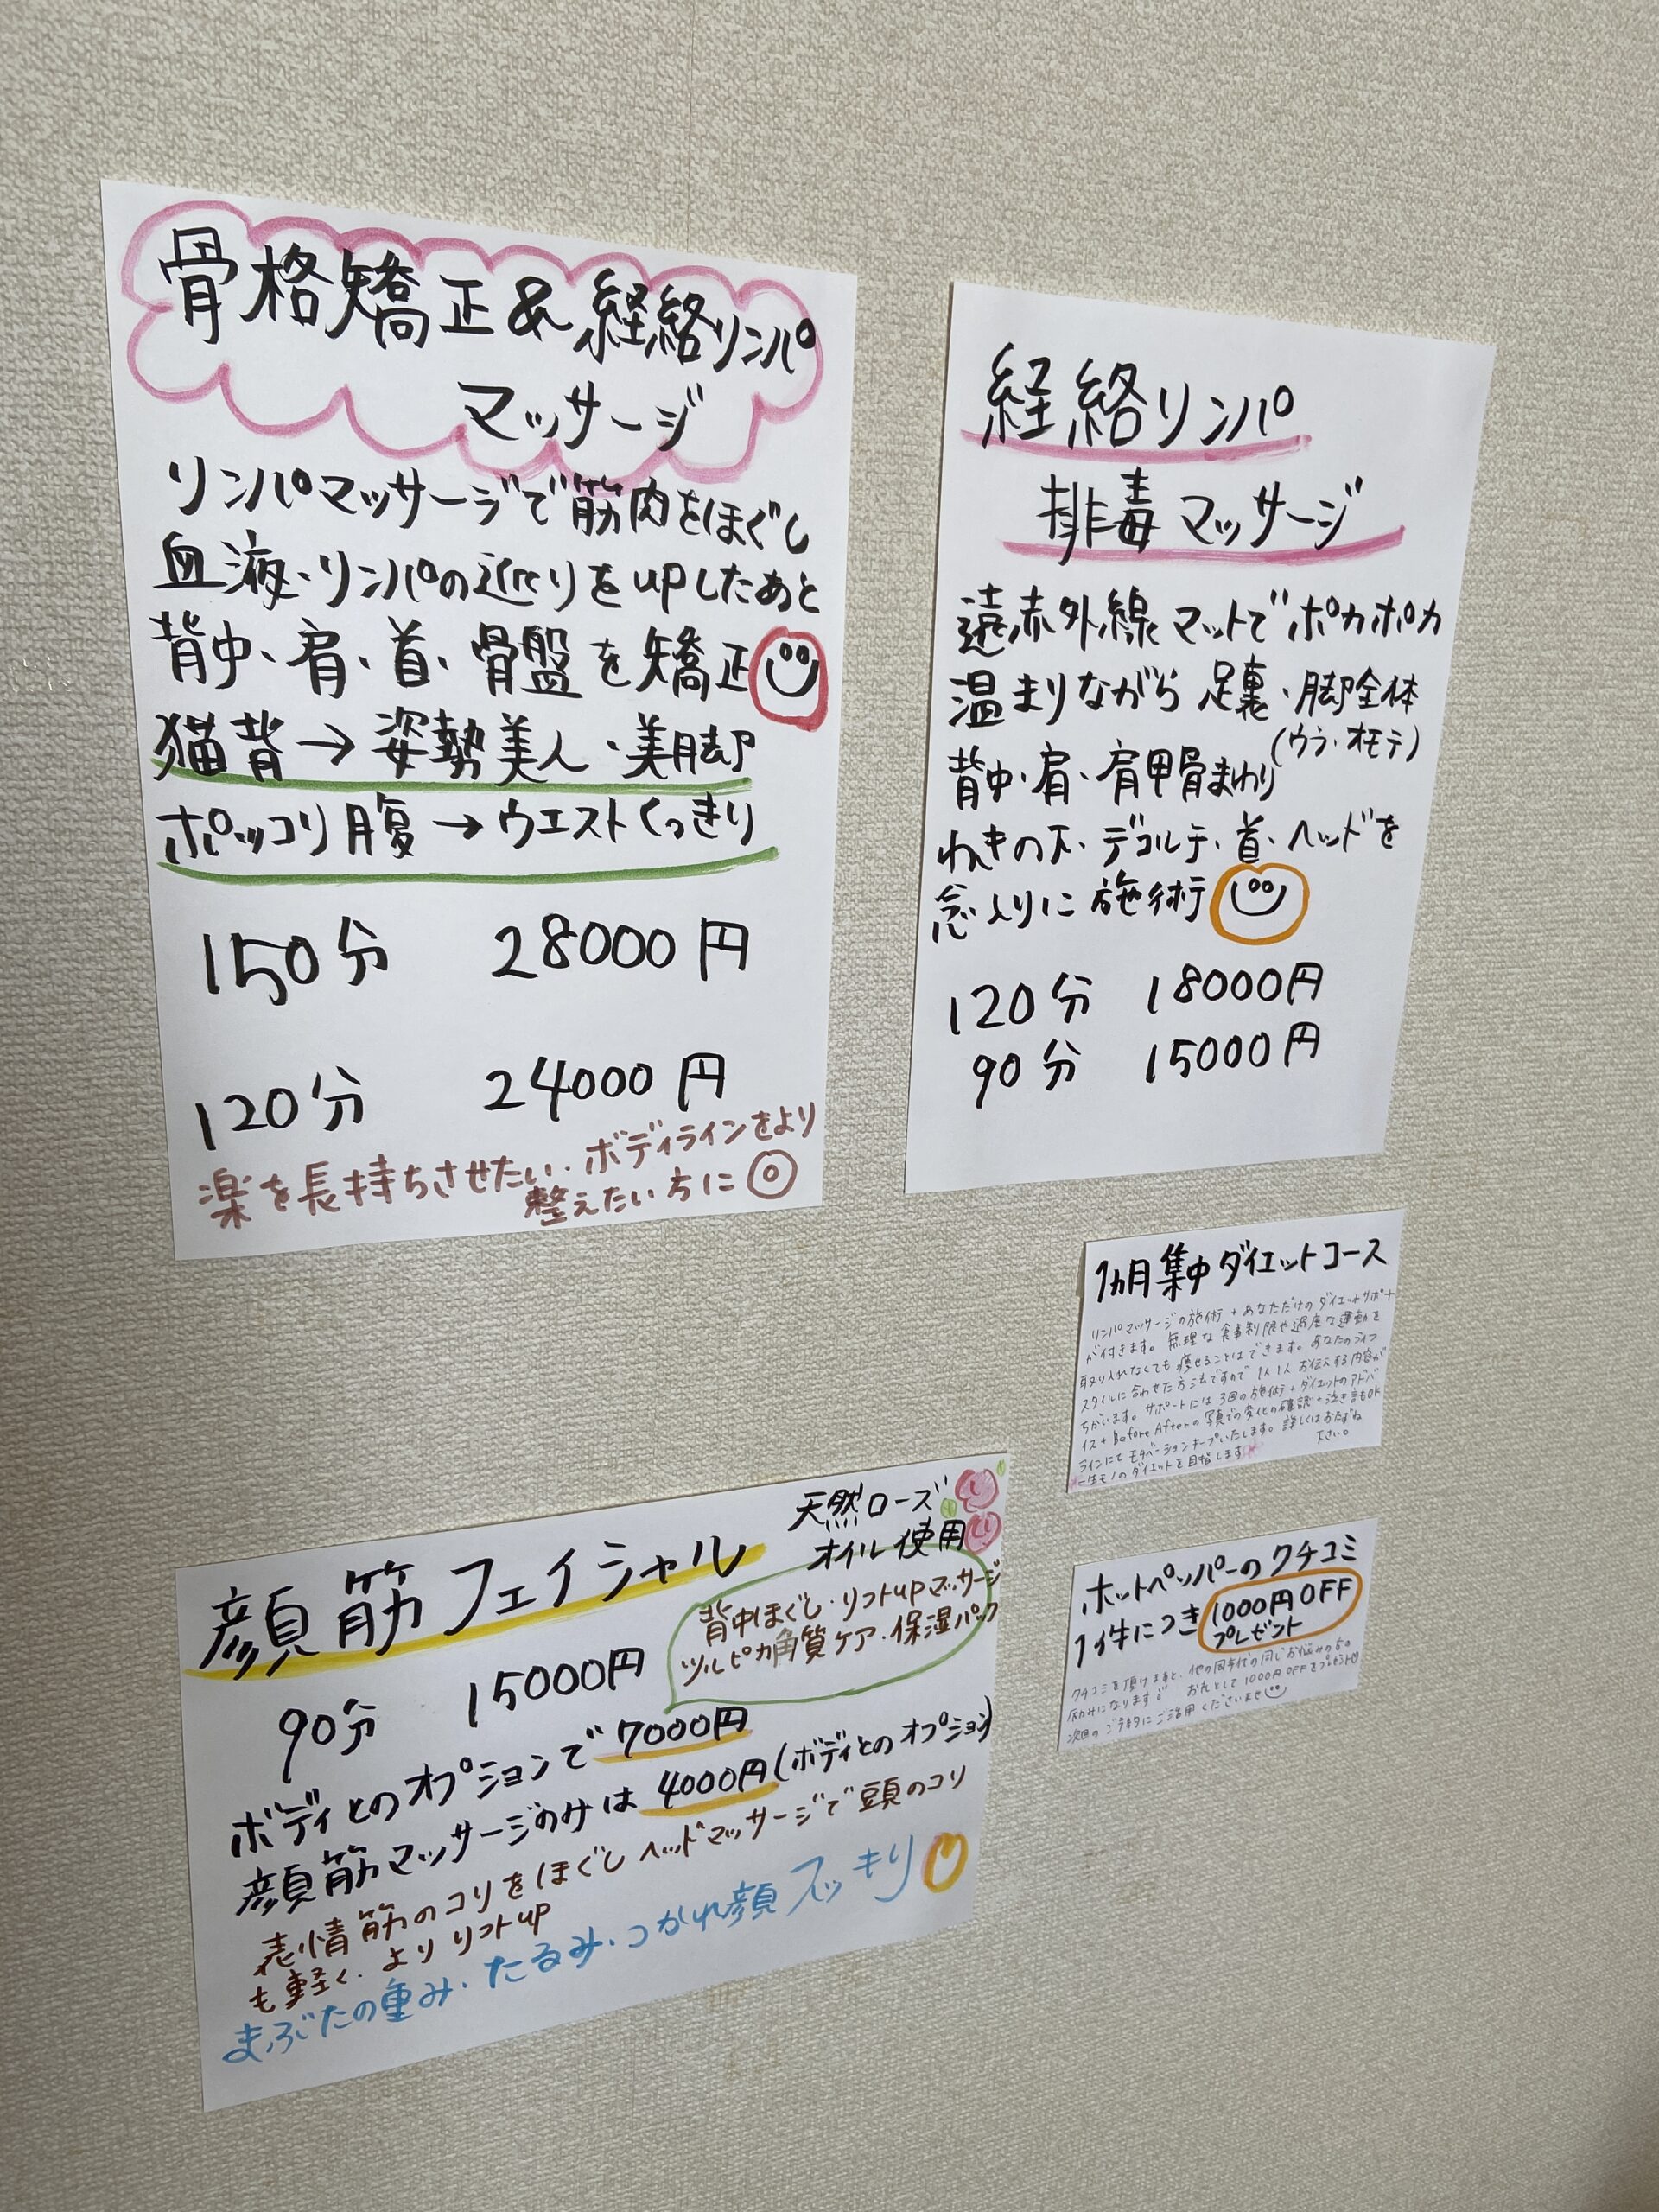 骨格矯正&経絡リンパ
マッサージ
リンパマッサージで筋肉をほぐし
血液・リンパの巡りをupしたあと
背中、肩、首、骨盤を矯正
猫背→姿勢美人・美脚
ポッコリ腹→ウエストくっきり
150分 28000円
120分 24000円
楽を長持ちさせたい・ボディラインをより
整えたい方に◎
経絡リンパ
排毒マッサージ
遠赤外線マットでポカポカ
温まりながら足裏・脚全体
(ウラ・オモテ)
背中・肩・肩甲骨まわり
わきの下・デコルテ・首・ヘッドを
念入りに施術
120分 18000円
90分 15000円
1ヵ月集中ダイエットコース
リンパマッサージの施術+あなただけのダイエットサポート
が付きます。無理な食事制限や過度な運動を
取り入れなくても痩せることはできます。あなたのライフ
スタイルに合わせた方法ですので1人1人お伝えする内容が
ちがいます。サポートには3回の施術+ダイエットのアドバ
イス+Before Afterの写真での変化の確認+泣き言もOK
ラインにてモチベーションキープいたします。詳しくはおたずね
下さい。
一生モノのダイエットを目指します
顔筋フェイシャル
天然ローズ
オイル使用
背中ほぐし・リフトupマッサージ
ツルピカ角質ケア・保湿パック
90分 15000円
ボディとのオプションで7000円
顔筋マッサージのみは4000円(ボディとのオプション)
表情筋のコリをほぐしヘッドマッサージで頭のコリ
も軽く・よりリフトup
まぶたの重み・たるみ・つかれ顔スッキリ
ホットペッパーのクチコミ
1件につき1000円OFF
プレゼント
クチコミを頂けますと、他の同年代の同じお悩みの方の
励みになります お礼として1000円OFFをプレゼント
次回のご予約にご活用くださいませ